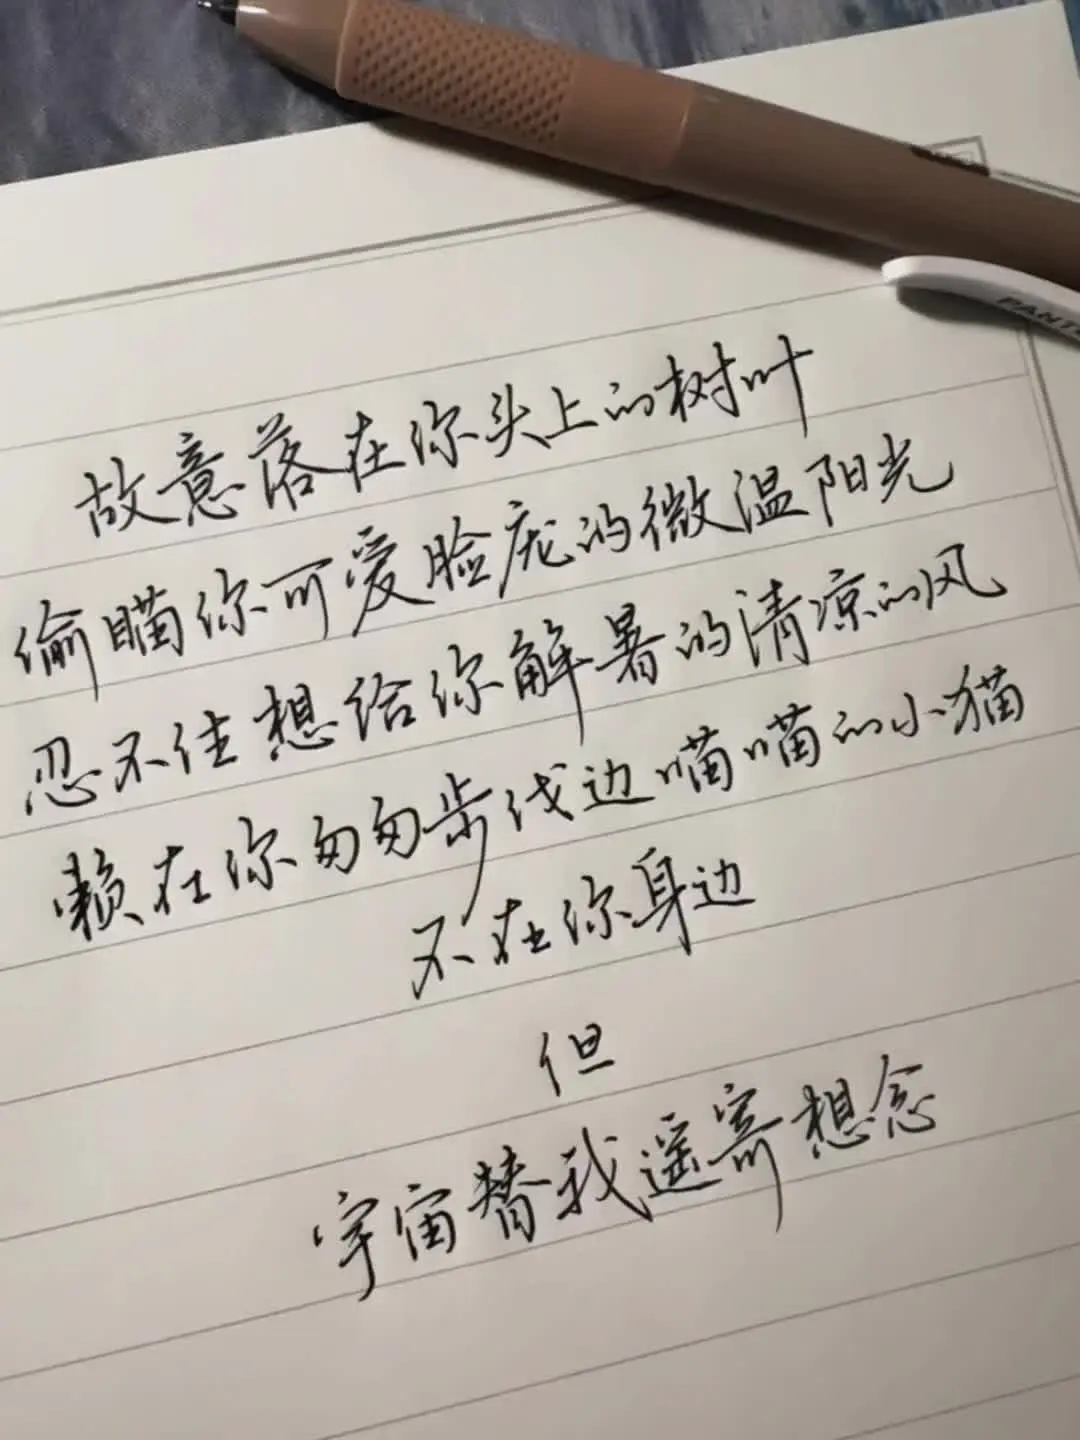 PANT
故意落在你头上的树叶
偷瞄你可爱脸庞的微温阳光
忍不住想给你解暑的清凉的风
赖在你匆匆步伐边喵喵的小猫
不在你身边
但
宇宙替我遥寄想念